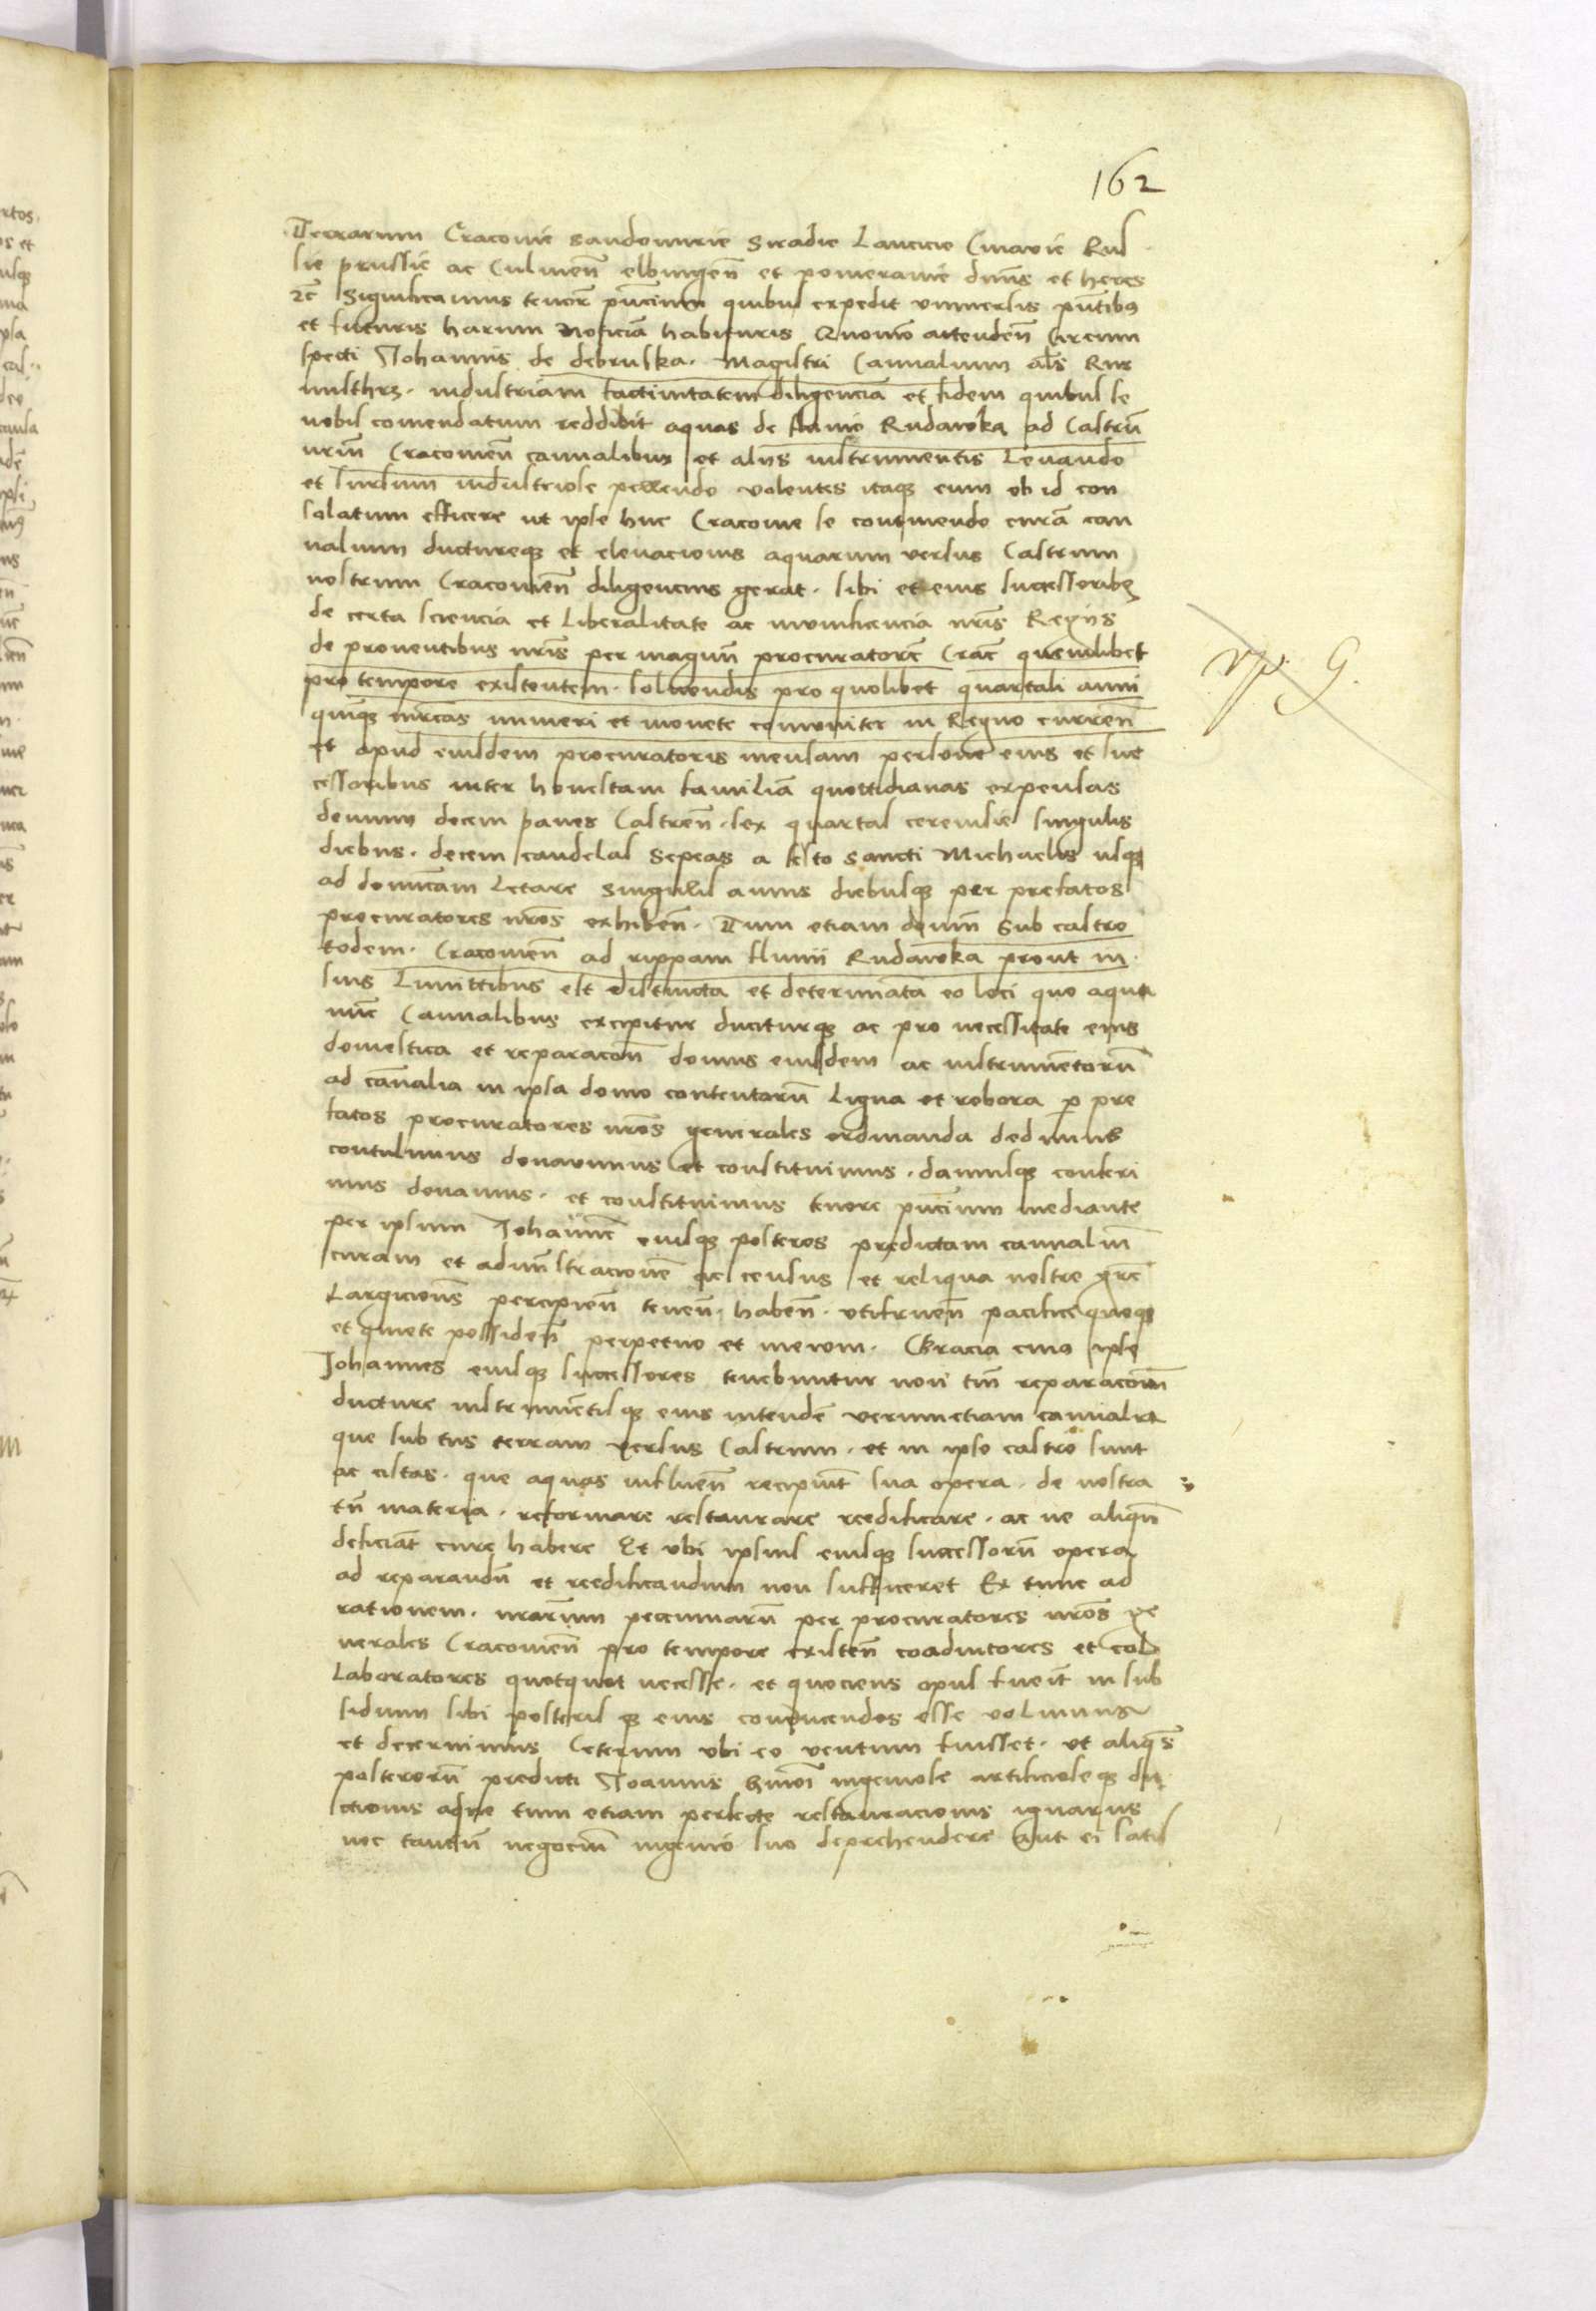 162
Terrarum Cracovie Sandomirie Siradie Lancicie Cuiavie Rus
sie prussie ac Culmeñ elbingeñ et pomeranie dñus et heres
Significamus tenore pñcium quibus expedit universis pñtibus
et futuris harum noticiã habituris Quomõ attendeñ Circum
specti Johannis de debruska. Magistri Cannalium als Rur
misthrz. industriam factivitatem diligenciã et fidem quibus se
nobis comendatum reddidit aquas de fluvio Rudawka ad Castrũ
nrm̃ Cracovieñ cannalibus et aliis instrumentis Levando
et sursum industriose pellendo volentes itaqz eum ob id con
solatum efficere ut ipse huc Cracovie se continendo curã can
nalium ductureqz et elevacionis aquarum versus Castrum
nostrum Cracovieñ diligencius gerat. sibi et eius successoribz
de certa sciencia et Liberalitate ac munificencia nris̃ Regiis
de proventibus nris̃ per magnũ procuratorẽ Crac̃ quemlibet
pro tempore existentem. solvendis pro quolibet quartali anni
quinqz mrcas numeri et monete comuniter in Regno curreñ
et apud eiusdem procuratoris mensam persone eius et suc
cessoribus inter honestam familiã quottidianas expensas
demum decem panes Castreñ. sex quartal cerevisie singulis
diebus. decem candelas sepeas a festo sancti Michaelis usqz
ad domicam Letare singulis annis diebusqz per prefatos
procuratores nros̃ exhibeñ. Tum etiam domũ sub castro
eodem. Cracovieñ ad rippam fluvii Rudawka prout in
suis Limittibus est distincta et determinata eo loci quo aqua
nũc Cannalibus excipitur duciturqz ac pro necessitate eius
domestica et reparacoñ domus eiusdem ac instrumentorũ
ad cañalia in ipsa domo contentorũ Ligna et robora p pre
fatos procuratores nros̃ generales ordinanda dedimus
contulimus donavimus et constituimus. damusqz conferi
mus donamus. et constituimus tenore pñcium mediante
per ipsum Johannẽ eiusqz posteros predictam cannaliũ
curam et admĩstracionẽ ac census et reliqua nostre grẽ
Largicioñs percipieñ teneñ. habeñ. utifrueñ pacifice quoqz
et quiete possideñ perpetuo et inevom. Gracia cuius ipse
Johannes eiusqz successores tenebuntur non tm̃ reparacoñi
ducture instrumẽtisqz eius intendẽ verumetiam cannalia
que sub tus terram versus Castrum. et in ipso castro sunt
ac cistas. que aquas influeñ recipiũt sua opera. de nostra
tñ materia. reformare restaurare reedificare. ac ne aliqñ
deficiãt cure habere Et ubi ipsius eiusqz successorũ opera
ad reparandũ et reedificandum non sufficeret Ex tunc ad
rationem. nrarum pecuniarũ per procuratores nros̃ ge
nerales Cracovieñ pro tempore existeñ coadiutores et col
Laboratores quotquot necesse. et quociens opus fueit in sub
sidium sibi posteris qz eius conducendos esse volumus
et decernimus Ceterum ubi eo ventum fuisset. ut aliqs̃
posterorũ predicti Joannis hmõi ingeniose artificioseqz du
ctionis aque tum etiam perfecte restauracionis ignarus
nec tantũ negociũ ingenio suo deprehendere aut ei satis